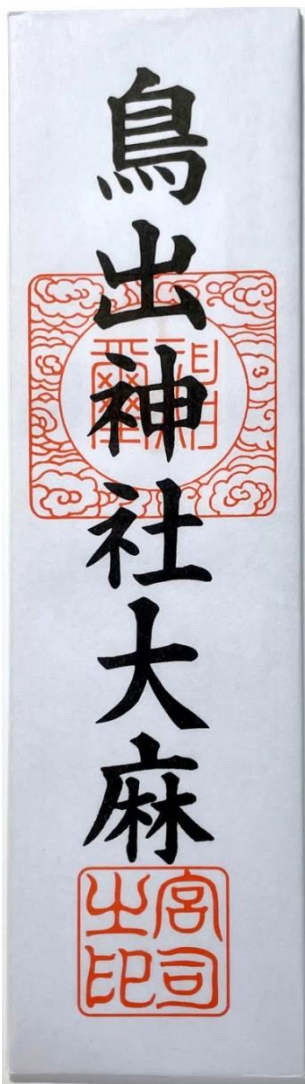 鳥出神社大麻
神璽
宮司之印